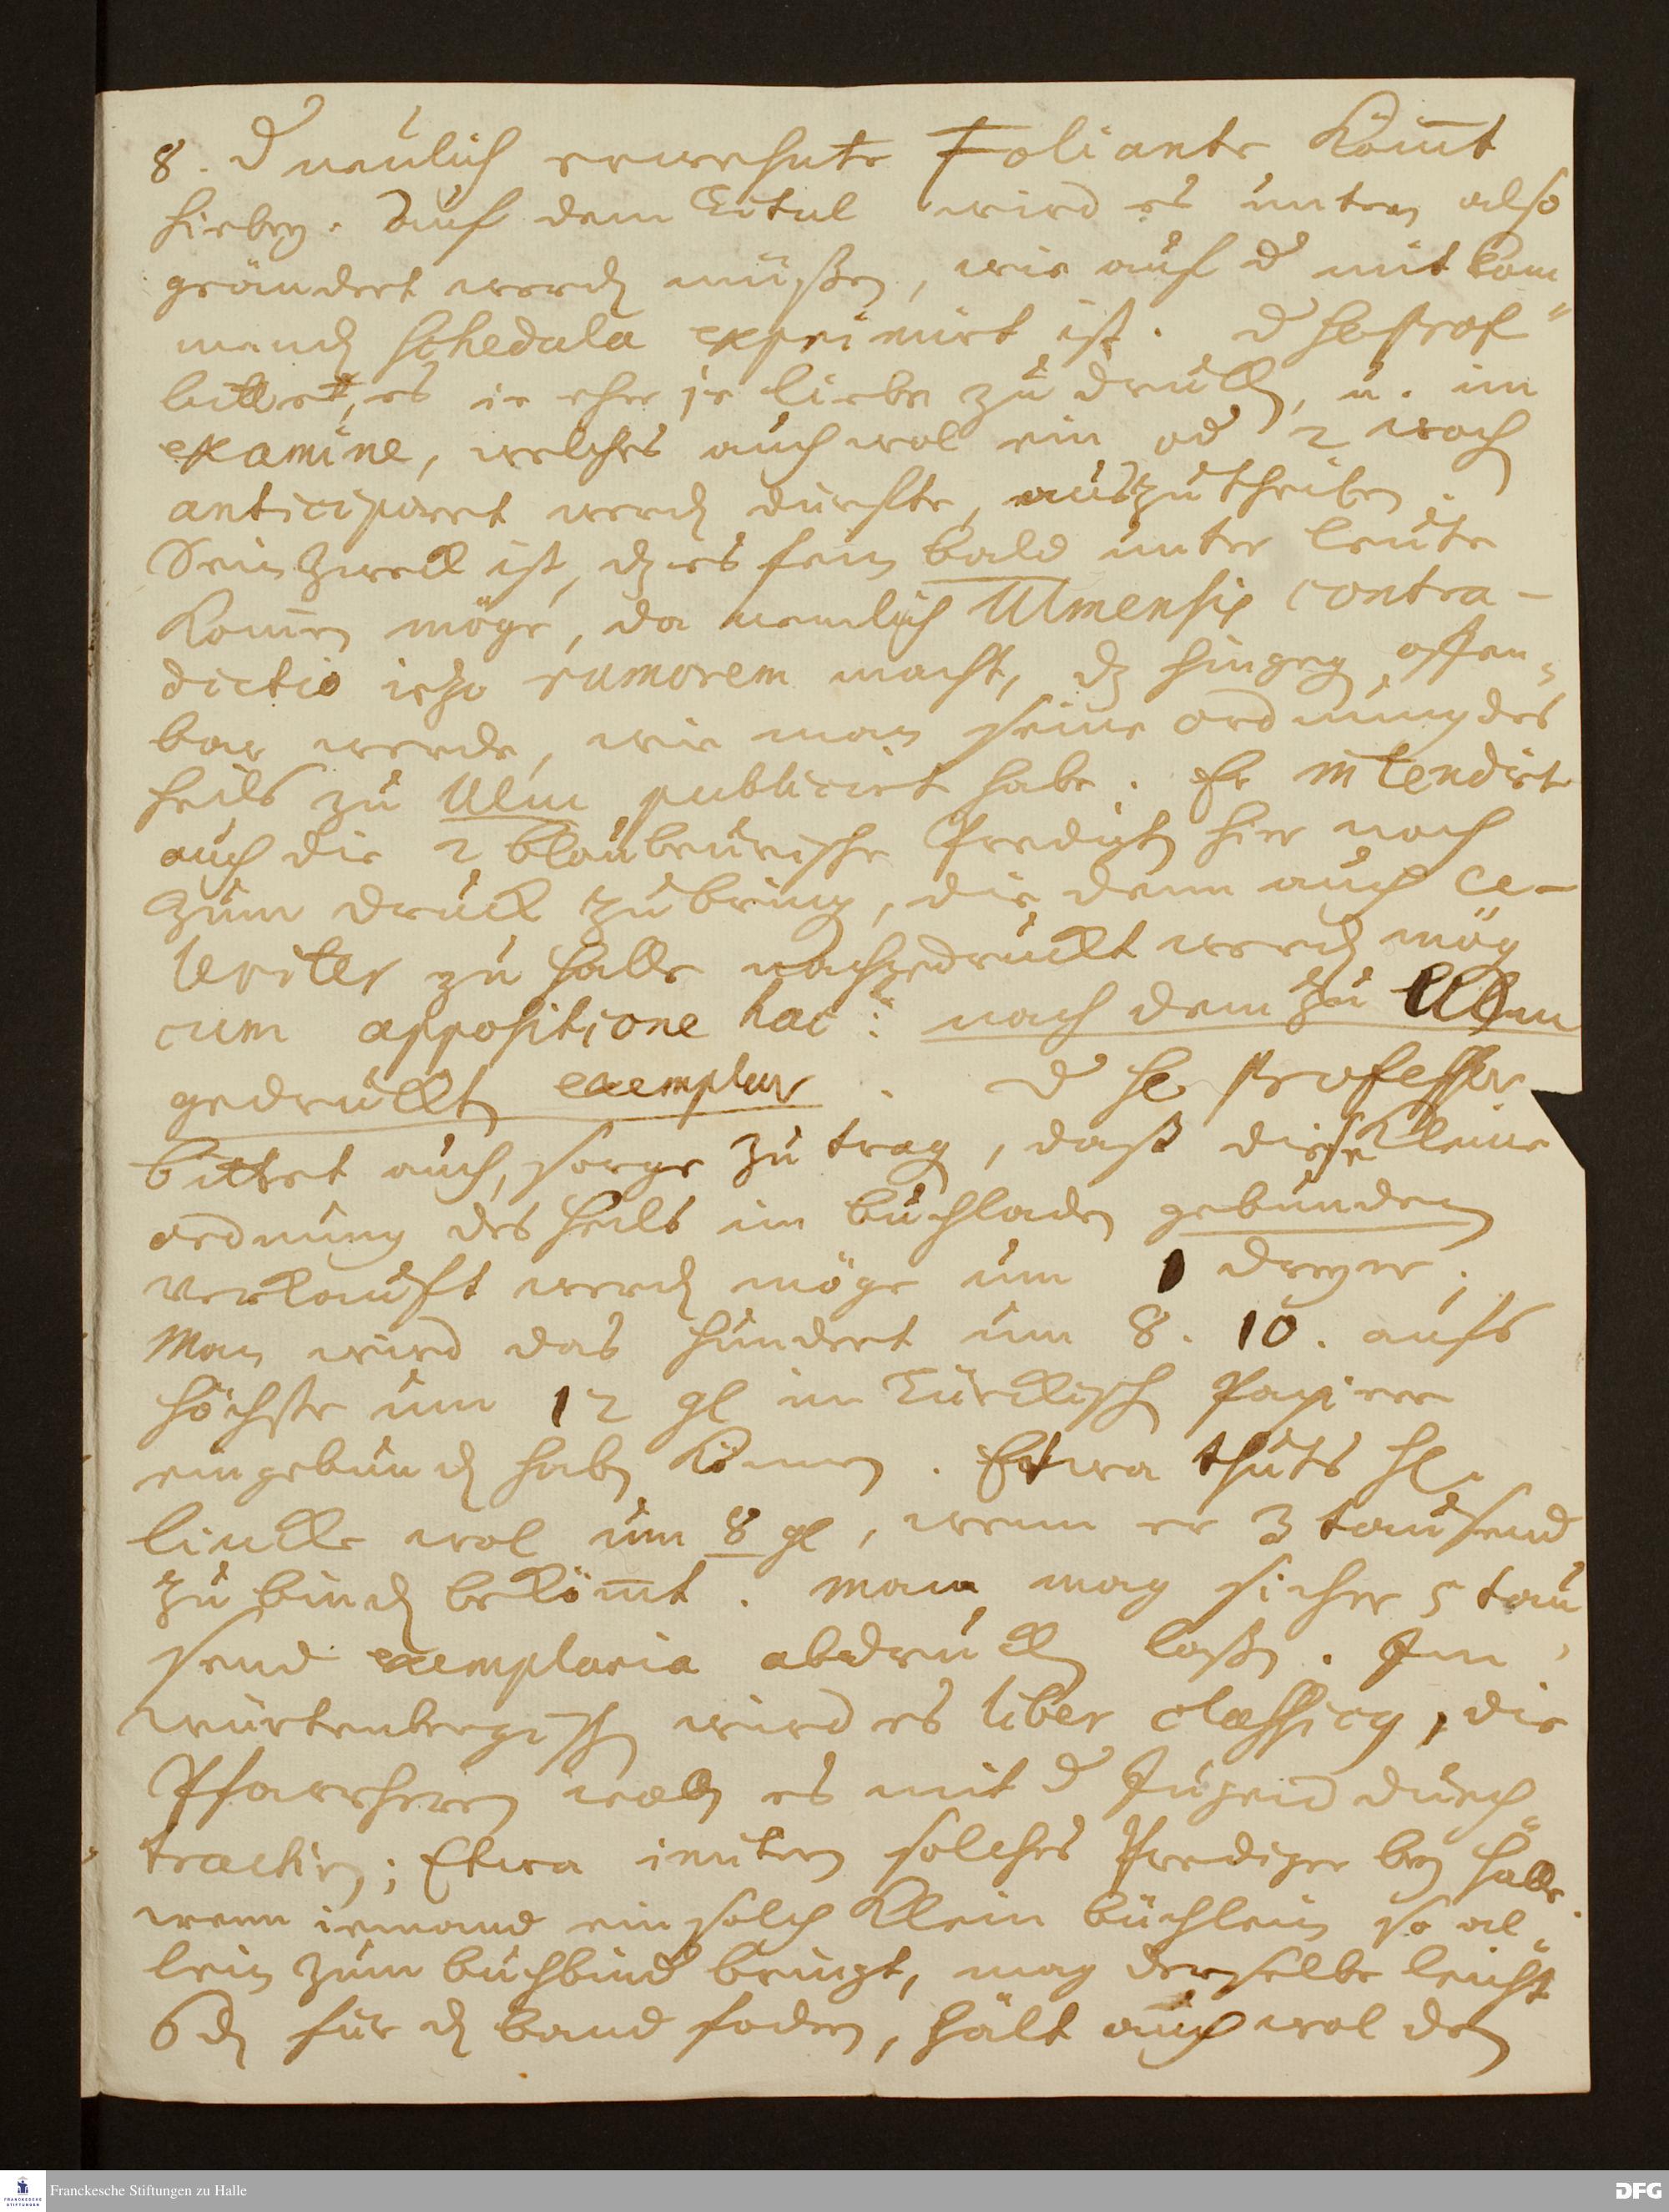 8. d neulich erwehnte Foliante kömt
hirbey. Auf dem Titul wird es unten also
geändert werdn müßen, wie auf d mit kom
mendn schedula exprimirt ist. d He Prof
bittet, es ie eher je lieber zu druckn, u. im
examine, welches auch wol ein od 2 woch
anticipiret werdn dürfte, auszutheilen.
Sein Zweck ist, dz es fein bald unter leute
komen möge, da nemlich Ulmensis contra-
dictio iezo rumorem macht, dz hingeg offen
bar werde, wie man seine ordnung des
heils zu Ulm publicirt habe. Er intendirt
auch die 2 blaubeurische Predigtn hier noch
zum druck zu bring, die denn auch ce-
leriter zu Halle nachgedruckt werdn mög
cum appositione hac: nach dem zu Ulm
gedruckten exemplar. d He Professor
bittet auch, sorge zu trag, daß diese kleine
ordnung des heils im buchladen gebunden
verkauft werdn möge um 1 dreyer;
Man wird das hundert um 8. 10. aufs
höchste um 12 gl in Türckisch Papier
eingebundn habn können. Etwa thuts He
lincke wol um 8 gl, wenn er 3 tausend
zu bindn bekömt. man mag sicher 5 tau
send exemplaria abdruckn laßn. Im
würtenbergischn wird es liber classicus, die
Pfarrherren wolln es mit d Jugend durch
tractirn; Etwa imitirn solches Prediger bey Halle.
wenn iemand ein solch klein büchlein so al
lein zum buchbind bringt, mag derselbe leicht
6 dn für dn band fodern, hält auch wol den
Franckesche Stiftungen zu Halle
FRANCKESCHE STIFTUNGEN
DFG